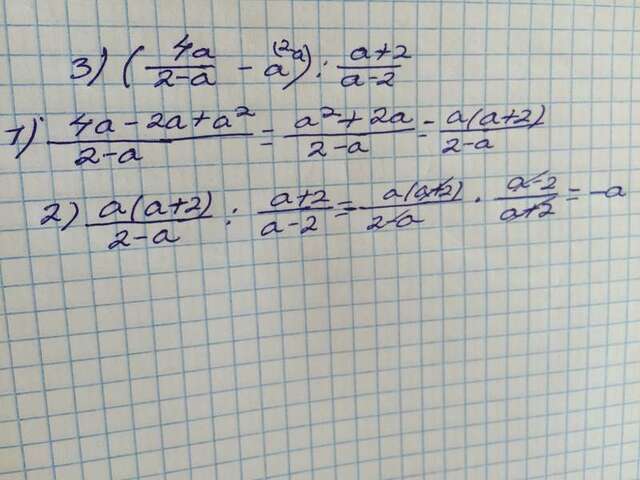 3) (4a/(2-a) - a^(2-a)) : (a+2)/(a-2)
1) (4a-2a+a²)/(2-a) = (a²+2a)/(2-a) = a(a+2)/(2-a)
2) a(a+2)/(2-a) : (a+2)/(a-2) = a(a+2)/(2-a) · (a-2)/(a+2) = -a